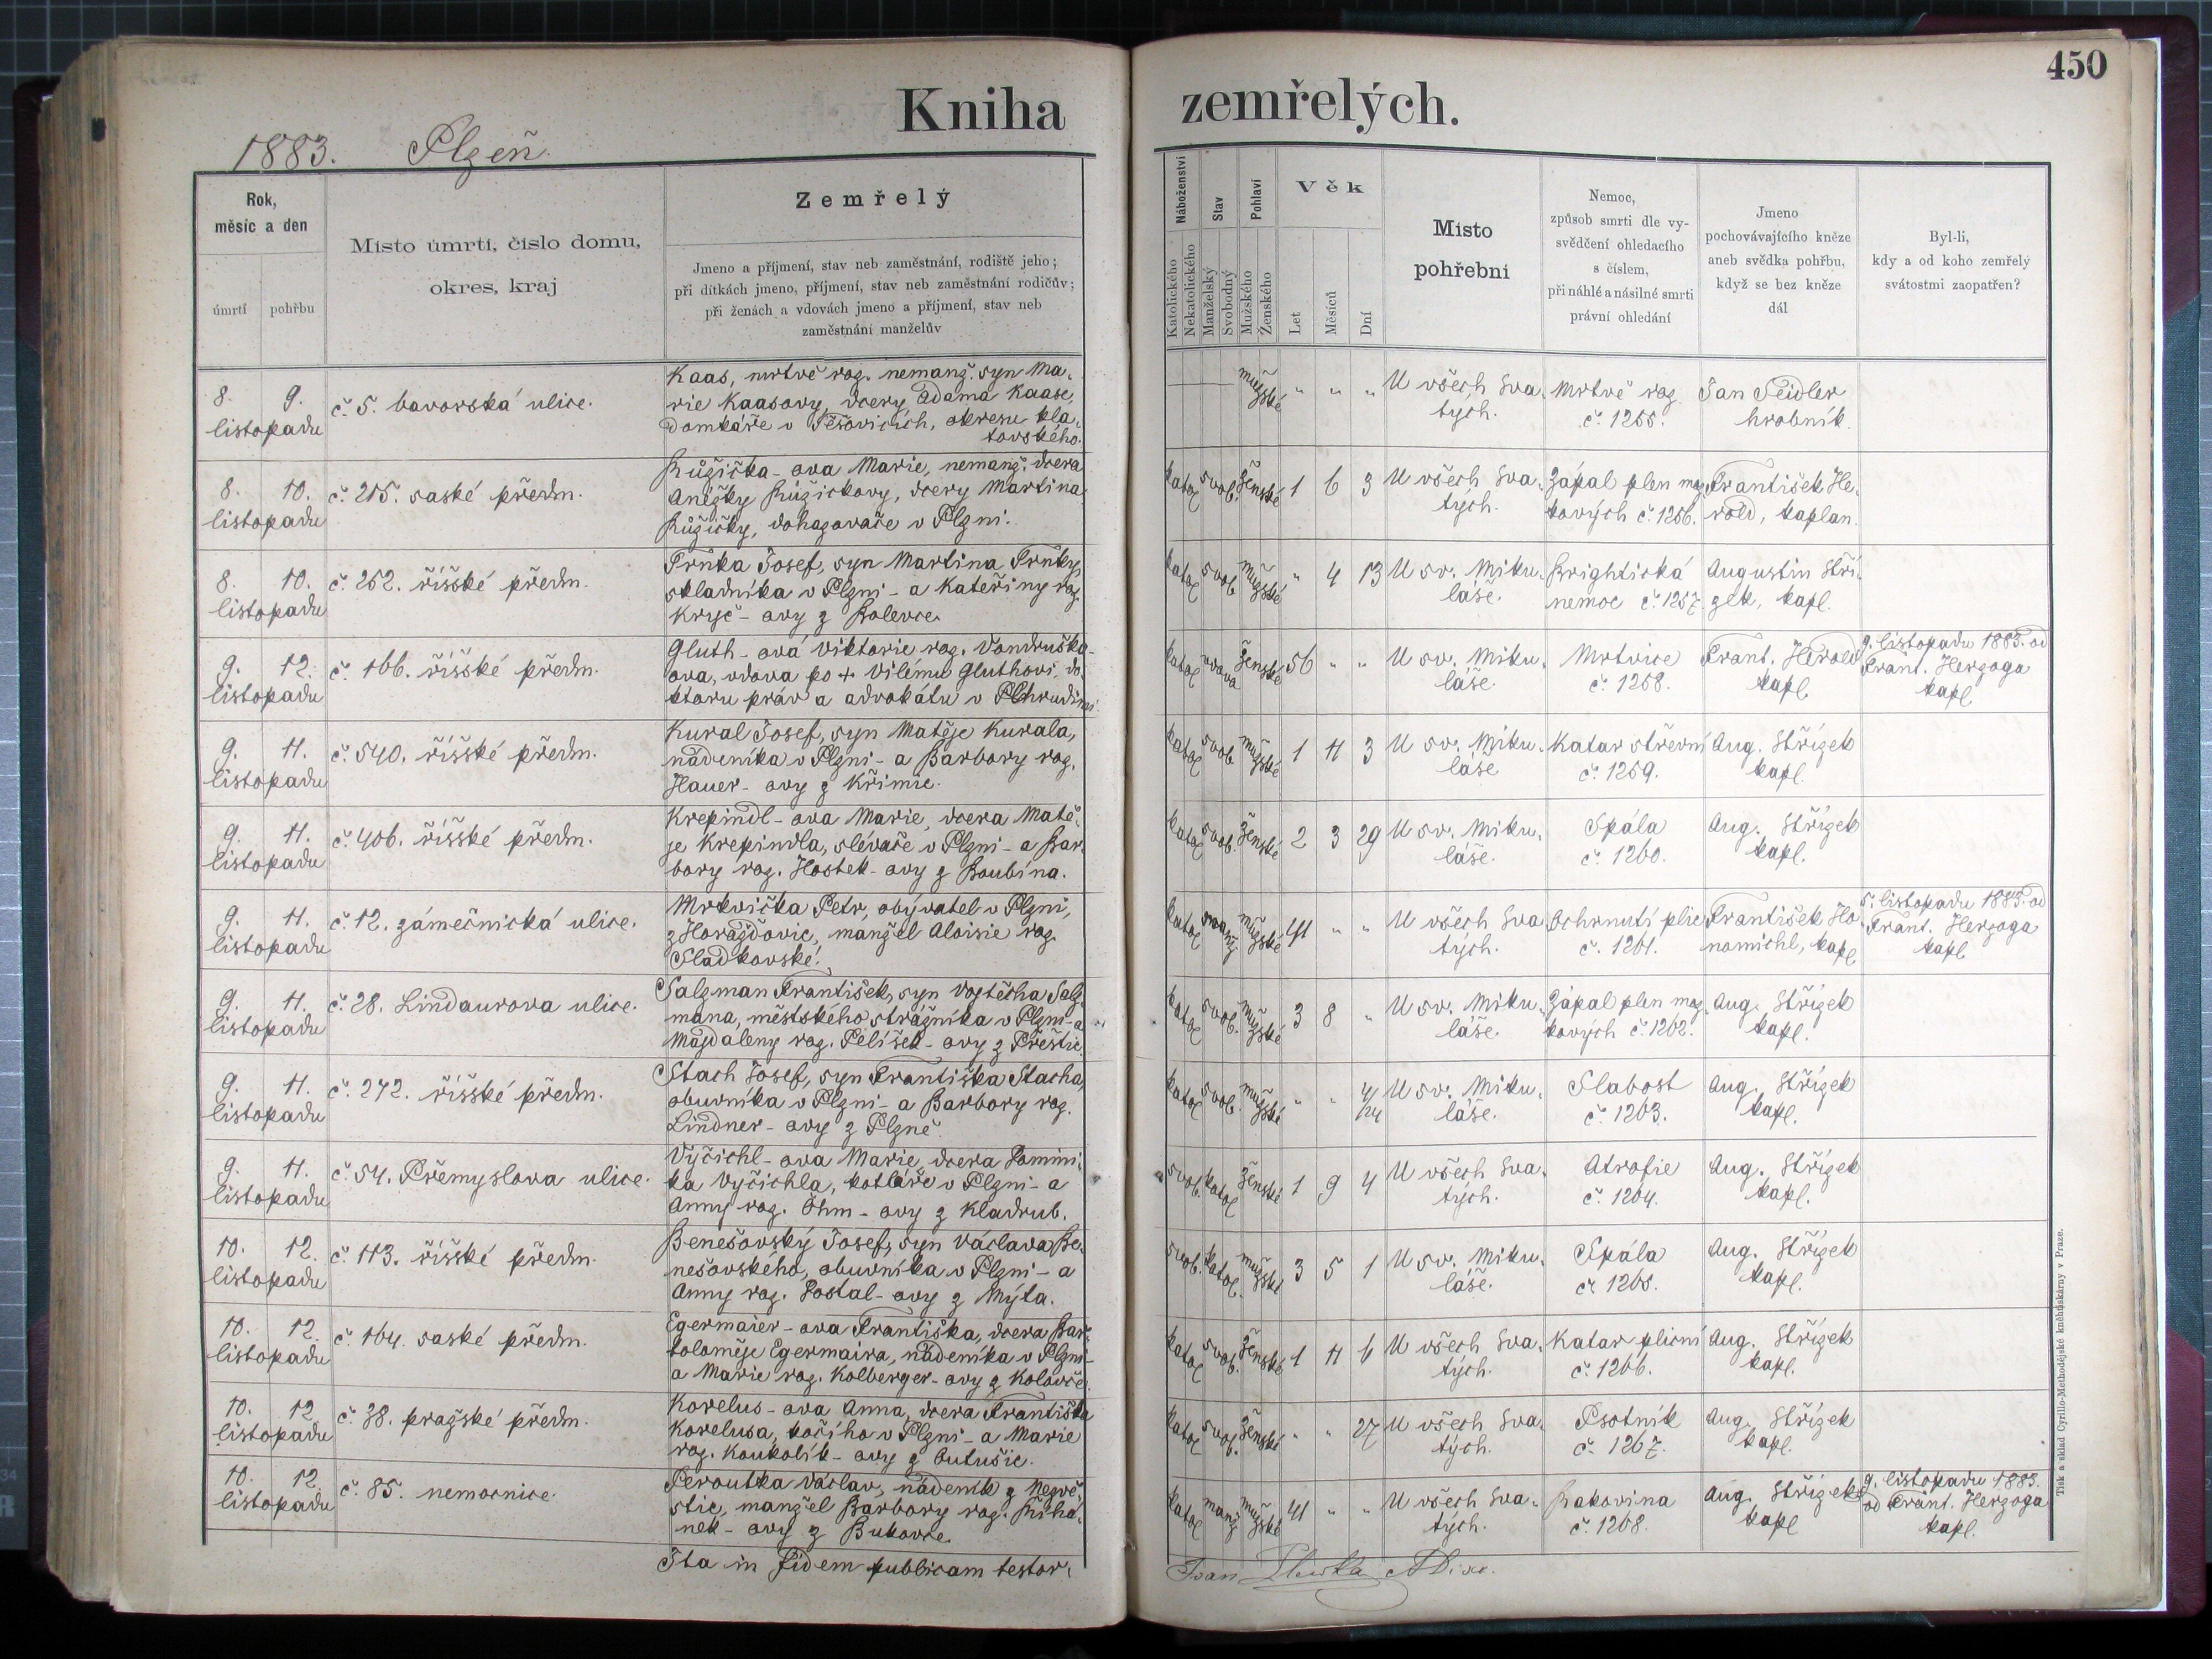 450
Kniha zemřelých.
1883. Plzeň.
Rok, měsíc a den
úmrtí
pohřbu
Místo úmrtí, číslo domu,
okres, kraj
Zemřelý
Jmeno a příjmení, stav neb zaměstnání, rodiště jeho;
při dítkách jmeno, příjmení, stav neb zaměstnání rodičův;
při ženách a vdovách jmeno a příjmení, stav neb
zaměstnání manželův
Náboženství
Katolického
Nekatolického
Stav
Manželský
Svobodný
Pohlaví
Mužského
Ženského
Věk
Let
Měsíců
Dní
Místo
pohřební
Nemoc,
způsob smrti dle vy-
svědčení ohledacího
s číslem,
při náhlé a násilné smrti
právní ohledání
Jmeno
pochovávajícího kněze
aneb svědka pohřbu,
když se bez kněze
dál
Byl-li,
kdy a od koho zemřelý
svátostmi zaopatřen?
8. 9.
listopadu
č. 5. bavorská ulice.
Kaas, mrtvě roz. nemanž. syn Ma-
rie Kaasovy, dcery Adama Kaase,
domkáře v Těšovicích, okresu kla-
tovského.
mužské " " "
U všech Sva-
tých.
Mrtvě roz.
č. 1255.
Jan Seidler
hrobník.
8. 10.
listopadu
č. 215. saské předm.
Růžička-ova Marie, nemanž. dcera
Anežky Růžickovy, dcery Martina
Růžičky, dohazovače v Plzni.
katol svob. ženské 1 6 3
U všech Sva-
tých.
Zápal plen moz-
kových č. 1256.
František He-
rold, kaplan.
8. 10.
listopadu
č. 252. říšské předm.
Trnka Josef, syn Martina Trnky,
skladníka v Plzni - a Kateřiny roz.
Kryč-ovy z Bolevce.
katol svob mužské " 4 13
U sv. Miku-
láše.
Brightická
nemoc č. 1257.
Augustin Stří-
zek, kapl.
9. 12.
listopadu
č. 166. říšské předm.
Gluth-ová Viktorie roz. Vondruška-
ova, vdova po + Vilému Gluthovi, do-
ktoru práv a advokátu v Chrudimi.
katol vdova ženské 56 " "
U sv. Miku-
láše.
Mrtvice
č. 1258.
Frant. Herold
kapl
9. listopadu 1883. od
Frant. Herzoga
kapl
9. 11.
listopadu
č. 540. říšské předm.
Kural Josef, syn Matěje Kurala,
nádeníka v Plzni - a Barbory roz.
Hauer-ovy z Křimic.
katol svob mužské 1 11 3
U sv. Miku-
láše
Katar střevní
č. 1259.
Aug. Střízek
kapl.
9. 11.
listopadu
č. 406. říšské předm.
Krepindl-ova Marie, dcera Matě-
je Krepindla, slévače v Plzni - a Bar-
bory roz. Hostek-ovy z Boubína.
katol svob. ženské 2 3 29
U sv. Miku-
láše.
Spála
č. 1260.
Aug. Střízek
kapl.
9. 11.
listopadu
č. 12. zámečnická ulice.
Mrkvička Petr, obývatel v Plzni,
z Horažďovic, manžel Aloisie roz.
Sladkovské.
katol manž mužské 41 " "
U všech Sva-
tých.
Ochrnutí plic
č. 1261.
František Ho-
namichl, kapl
5. listopadu 1883. od
Frant. Herzoga
kapl
9. 11.
listopadu
č. 28. Lindaurova ulice.
Salzman František, syn Vojtěcha Salz-
mana, městského strážníka v Plzni - a
Majdaleny roz. Pelíšek-ovy z Přeštic.
katol svob. mužské 3 8 "
U sv. Miku-
láše.
Zápal plen moz-
kových č. 1262.
Aug. Střízek
kapl.
9. 11.
listopadu
č. 272. říšské předm.
Stach Josef, syn Františka Stacha,
obuvníka v Plzni - a Barbory roz.
Lindner-ovy z Plzně.
katol svob. mužské " " 4/24
U sv. Miku-
láše.
Slabost
č. 1263.
Aug. Střízek
kapl.
9. 11.
listopadu
č. 54. Přemyslova ulice.
Vyčichl-ova Marie, dcera Domini-
ka Vyčichla, kotláře v Plzni - a
Anny roz. Öhm-ovy z Kladrub.
svob. katol ženské 1 9 4
U všech Sva-
tých.
Atrofie
č. 1264.
Aug. Střízek
kapl.
10. 12.
listopadu
č. 113. říšské předm.
Benešovský Josef, syn Václava Be-
nešovského, obuvníka v Plzni - a
Anny roz. Dostal-ovy z Mýta.
svob. katol. mužské 3 5 1
U sv. Miku-
láše.
Spála
č. 1265.
Aug. Střízek
kapl.
10. 12.
listopadu
č. 164. saské předm.
Egermaier-ova Františka, dcera Bar-
toloměje Egermaira, nádeníka v Plzni -
a Marie roz. Kolberger-ovy z Koloveč.
katol svob. ženské 1 11 6
U všech Sva-
tých.
Katar plicní
č. 1266.
Aug. Střízek
kapl.
10. 12.
listopadu
č. 38. pražské předm.
Korelus-ova Anna, dcera Františka
Korelusa, kočího v Plzni - a Marie
roz. Koukolík-ovy z Outušic.
katol svob. ženské " " 27
U všech Sva-
tých.
Psotník
č. 1267.
Aug. Střízek
kapl.
10. 12.
listopadu
č. 85. nemocnice.
Peroutka Václav, nádeník z Nezvě-
stic, manžel Barbory roz. Říhá-
nek-ovy z Bukovce.
katol manž mužské 41 " "
U všech Sva-
tých.
Rakovina
č. 1268.
Aug. Střízek
kapl
9. listopadu 1883.
od Frant. Herzoga
kapl.
Ita in fidem publicam testor.
Tisk a sklad Cyrillo-Methodějské kněhtiskárny v Praze.